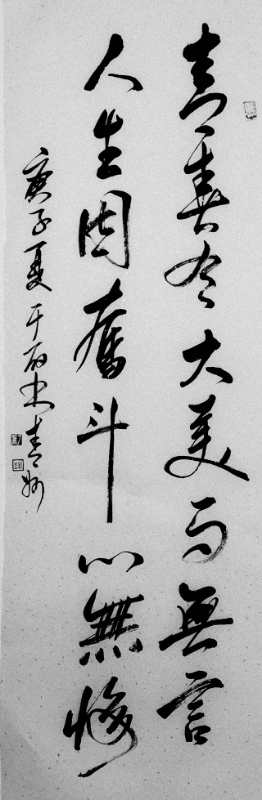 青春令大美而無言
人生因奮斗以無悔
庚子夏于
書青州